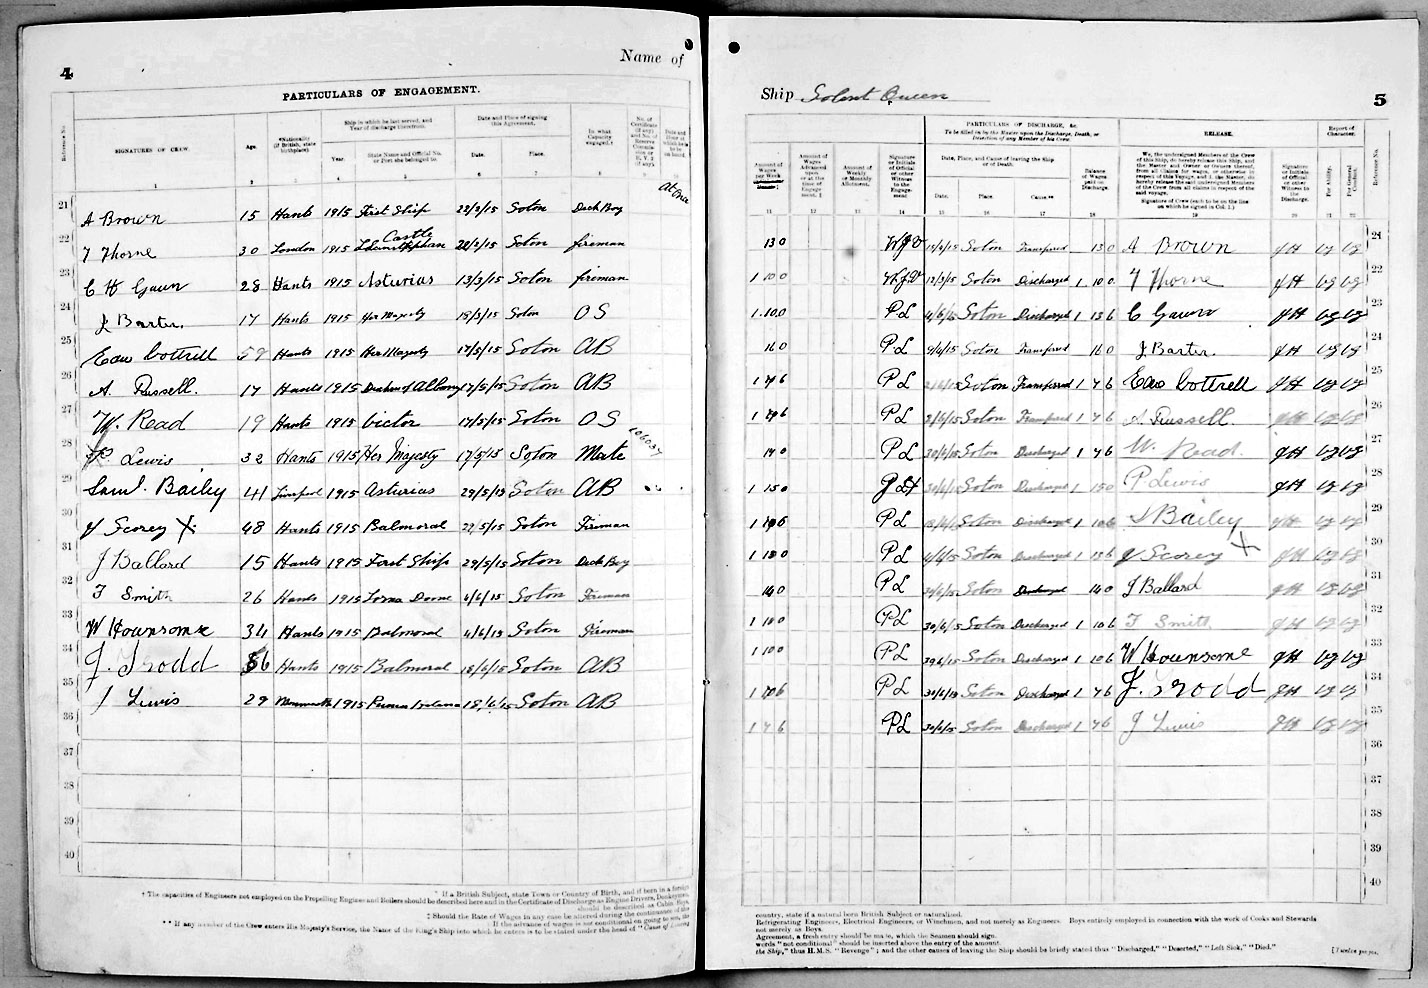 4
Name of
PARTICULARS OF ENGAGEMENT.
Reference No.
SIGNATURES OF CREW.
Age.
*Nationality (if British, state birthplace)
Ship in which he last served, and Year of discharge therefrom.
Year.
State Name and Official No. or Port she belonged to.
Date and Place of signing this Agreement.
Date.
Place.
In what Capacity engaged.†
1 2 3 4 5 6 7 8 9 10
At once
21 A Brown 15 Hants 1915 First Ship 22/2/15 Soton Deck Boy
22 T Thorne 30 London 1915 Castle 22/2/15 Soton fireman
23 C H Gawn 28 Hants 1915 Asturias 13/3/15 Soton fireman
24 J Barter. 17 Hants 1915 Her Majesty 15/3/15 Soton O S
25 Edw Cottrell 59 Hants 1915 Her Majesty 17/5/15 Soton AB
26 A. Russell. 17 Hants 1915 Duchess of Albany 17/5/15 Soton AB
27 W. Read 19 Hants 1915 Victor 17/5/15 Soton O S
28 P Lewis 32 Hants 1915 Her Majesty 17/5/15 Soton Mate
29 Saml. Bailey 41 Liverpool 1915 Asturias 29/5/15 Soton AB
30 J Scorey X 48 Hants 1915 Balmoral 29/5/15 Soton Fireman
31 J Ballard 15 Hants 1915 First Ship 29/5/15 Soton Deck Boy
32 F Smith 26 Hants 1915 Lorna Doone 4/6/15 Soton Fireman
33 W Hounsome 34 Hants 1915 Balmoral 4/6/15 Soton Fireman
34 J. Trodd 56 Hants 1915 Balmoral 18/6/15 Soton AB
35 J Lewis 29 Monmouth 1915 18/6/15 Soton AB
36
37
38
39
40
* If a British Subject, state Town or Country of Birth, and if born in a foreign
† The capacities of Engineers not employed on the Propelling Engines and Boilers should be described here and in the Certificate of Discharge as Engine Drivers, Donkeymen,
should be described as Cabin Boys,
‡ Should the Rate of Wages in any case be altered during the continuance of the
If the advance of wages is not conditional on going to sea, the
** If any member of the Crew enters His Majesty's Service, the Name of the King's Ship into which he enters is to be stated under the head of "Cause of leaving
Ship Solent Queen
5
PARTICULARS OF DISCHARGE, &c.
To be filled in by the Master upon the Discharge, Death, or Desertion of any Member of his Crew.
RELEASE.
Report of Character.
Amount of Wages per Week
Amount of Wages Advanced upon or at the time of Engagement. ‡
Amount of Weekly or Monthly Allotment.
Signature or Initials of Official or other Witness to the Engagement
Date, Place, and Cause of leaving the Ship or of Death.
Date.
Place.
Cause.**
Balance of Wages paid on Discharge.
We, the undersigned Members of the Crew of this Ship, do hereby release this Ship, and the Master and Owner or Owners thereof, from all Claims for wages, or otherwise in respect of this Voyage, and I, the Master, do hereby release the said undersigned Members of the Crew from all claims in respect of the said voyage.
Signature of Crew (each to be on the line on which he signed in Col. 1.)
Signature or Initials of Official or other Witness to the Discharge.
For Ability.
For General Conduct.
Reference No.
11 12 13 14 15 16 17 18 19 20 21 22
13 0 WJV Soton Transferred 13 0 A Brown JH vg vg 21
1 10 0 WJV 12/3/15 Soton Discharged 1 10 0 T Thorne JH vg vg 22
1.10.0 PL 4/6/15 Soton Discharged 1 13 6 C Gawn JH vg vg 23
16 0 PL 9/4/15 Soton Transferred 16 0 J Barter. JH vg vg 24
1 7 6 PL Soton Transferred 1 7 6 Edw Cottrell JH vg vg 25
1 7 6 PL Soton Transferred 1 7 6 A. Russell. JH vg vg 26
PL 30/6/15 Soton Discharged 1 7 6 W. Read. JH vg vg 27
1 15 0 30/6/15 Soton Discharged 1 15 0 P Lewis JH vg vg 28
PL Soton Discharged 1 10 6 S Bailey JH vg vg 29
1 10 0 PL 4/6/15 Soton Discharged 1 13 6 J Scorey X JH vg vg 30
14 0 PL 30/6/15 Soton Discharged 14 0 J Ballard JH vg vg 31
1 10 0 PL 30/6/15 Soton Discharged 1 10 6 F Smith JH vg vg 32
1 10 0 PL 30/6/15 Soton Discharged 1 10 6 W Hounsome JH vg vg 33
PL 30/6/15 Soton Discharged 1 7 6 J. Trodd JH vg vg 34
1 7 6 PL 30/6/15 Soton Discharged 1 7 6 J Lewis JH vg vg 35
36
37
38
39
40
country, state if a natural born British Subject or naturalized.
Refrigerating Engineers, Electrical Engineers, or Winchmen, and not merely as Engineers. Boys entirely employed in connection with the work of Cooks and Stewards
not merely as Boys.
Agreement, a fresh entry should be made, which the Seamen should sign.
words "not conditional" should be inserted above the entry of the amount.
the Ship," thus H.M.S. "Revenge"; and the other causes of leaving the Ship should be briefly stated thus "Discharged," "Deserted," "Left Sick," "Died."